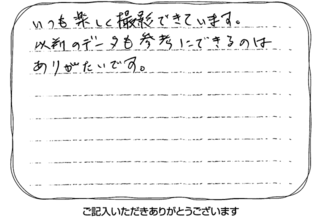 いつも楽しく撮影できています。
以前のデータも参考にできるのは
ありがたいです。
ご記入いただきありがとうございます